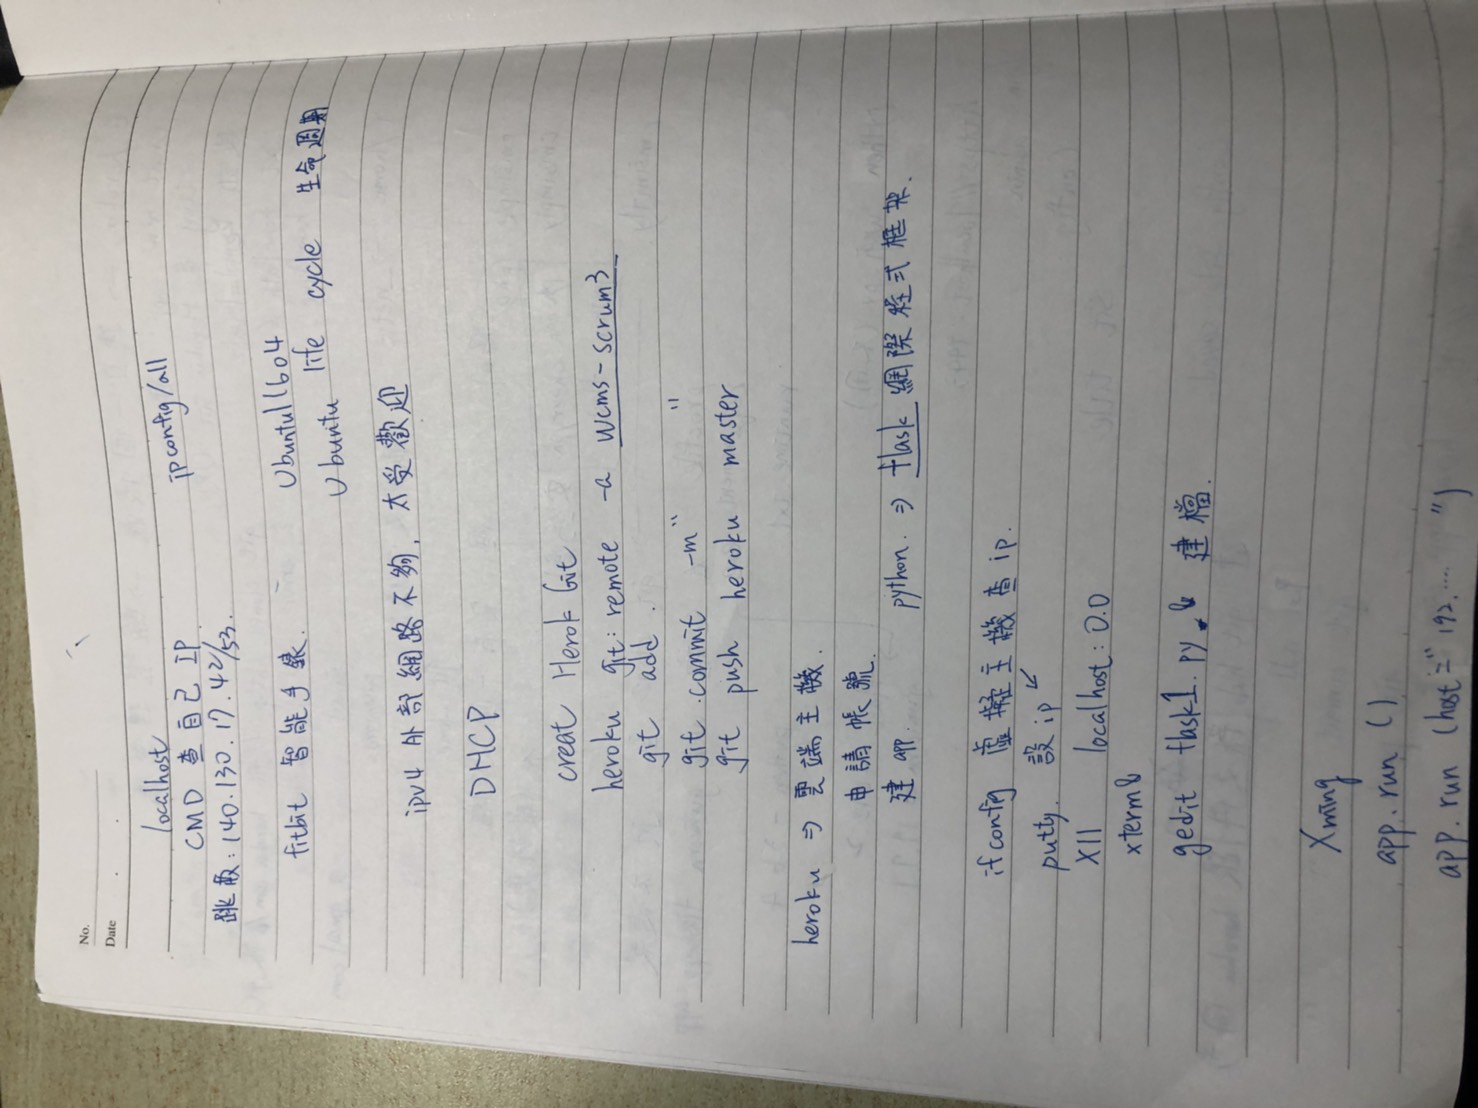 No.
Date
localhost
CMD 查自己IP ipconfig/all
跳板:140.130.17.42/53.
fitbit 智能手錶. Ubuntu1604
Ubuntu life cycle 生命週期
ipv4 外部網路不夠, 太受歡迎
DHCP
creat Herok Git
heroku git:remote -a wcms-scrum3
git add .
git commit -m" "
git push heroku master
heroku ⇒ 雲端主機.
申請帳號.
建 app. python. ⇒ flask 網際程式框架.
ifconfig 虛擬主機查ip.
putty. 設ip ↙
X11 localhost:0.0
xterm&
gedit flask1.py & 建檔.
Xming
app.run()
app.run (host="192......")